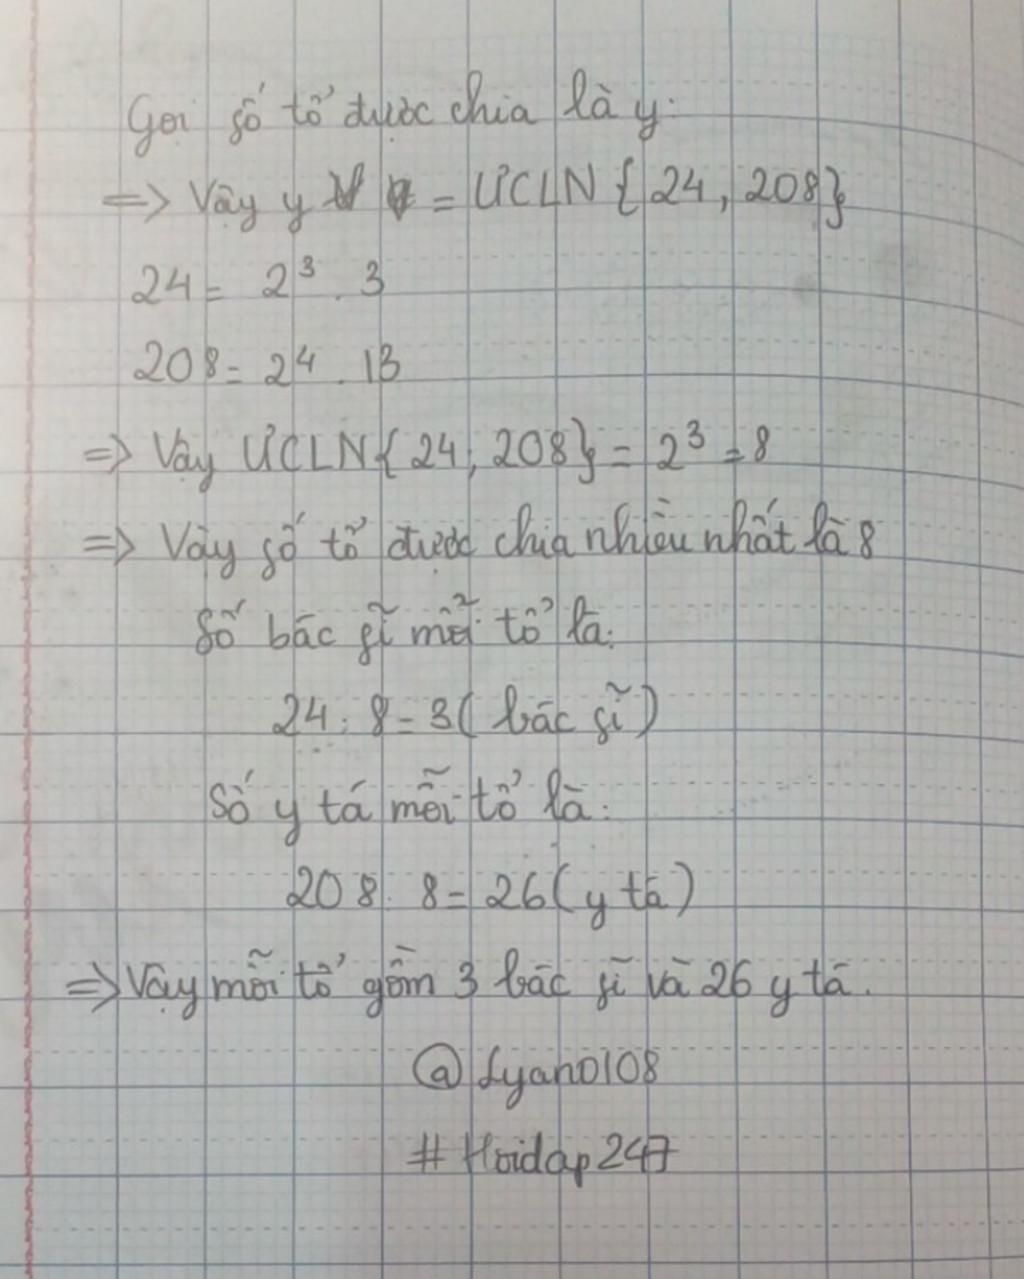 Gọi số tổ được chia là y.
=> Vậy y = ƯCLN {24, 208}
24 = 2³ . 3
208 = 2⁴ . 13
=> Vậy ƯCLN{24, 208} = 2³ = 8
=> Vậy số tổ được chia nhiều nhất là 8
Số bác sĩ mỗi tổ là:
24 : 8 = 3 ( bác sĩ )
Số y tá mỗi tổ là:
208 : 8 = 26 ( y tá )
=> Vậy mỗi tổ gồm 3 bác sĩ và 26 y tá.
@Lyan0108
# Hoidap247